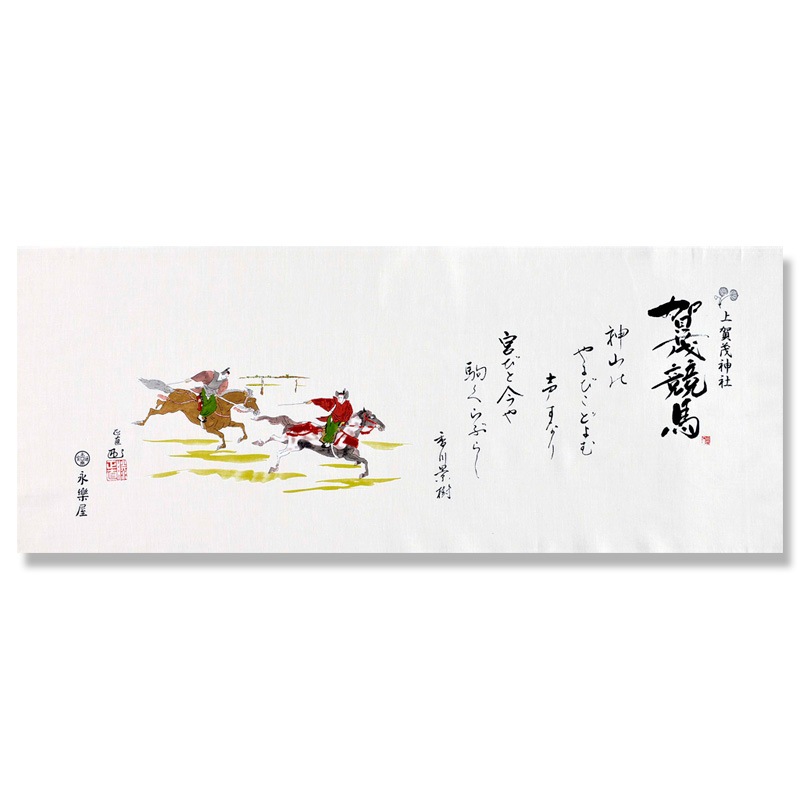 上賀茂神社
賀茂競馬
神山の
やまびこどよむ
声すなり
宮びと今や
駒くらぶらし
香川景樹
永樂屋